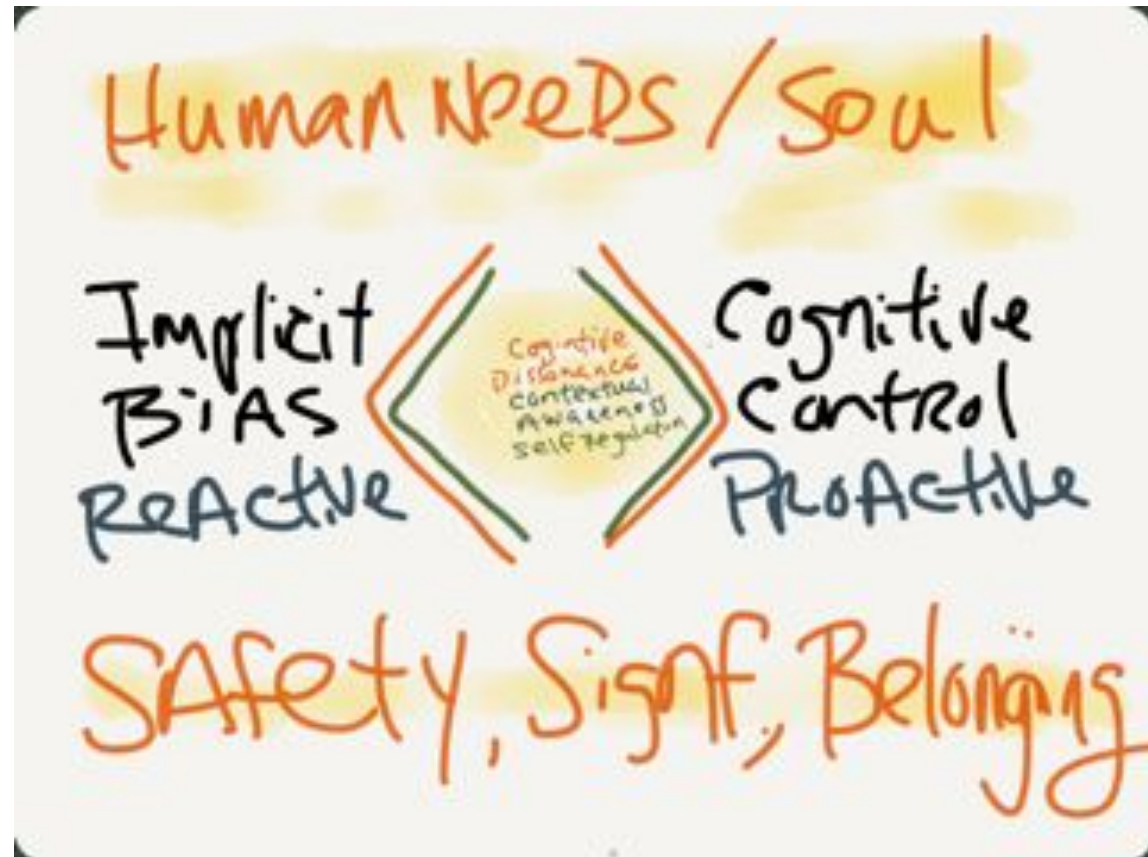 Human Needs / Soul
Implicit
BiAS
ReActive
Cognitive
Dissonance
contextual
Awareness
self Regulation
Cognitive
Control
ProActive
SAfety, Signf, Belonging